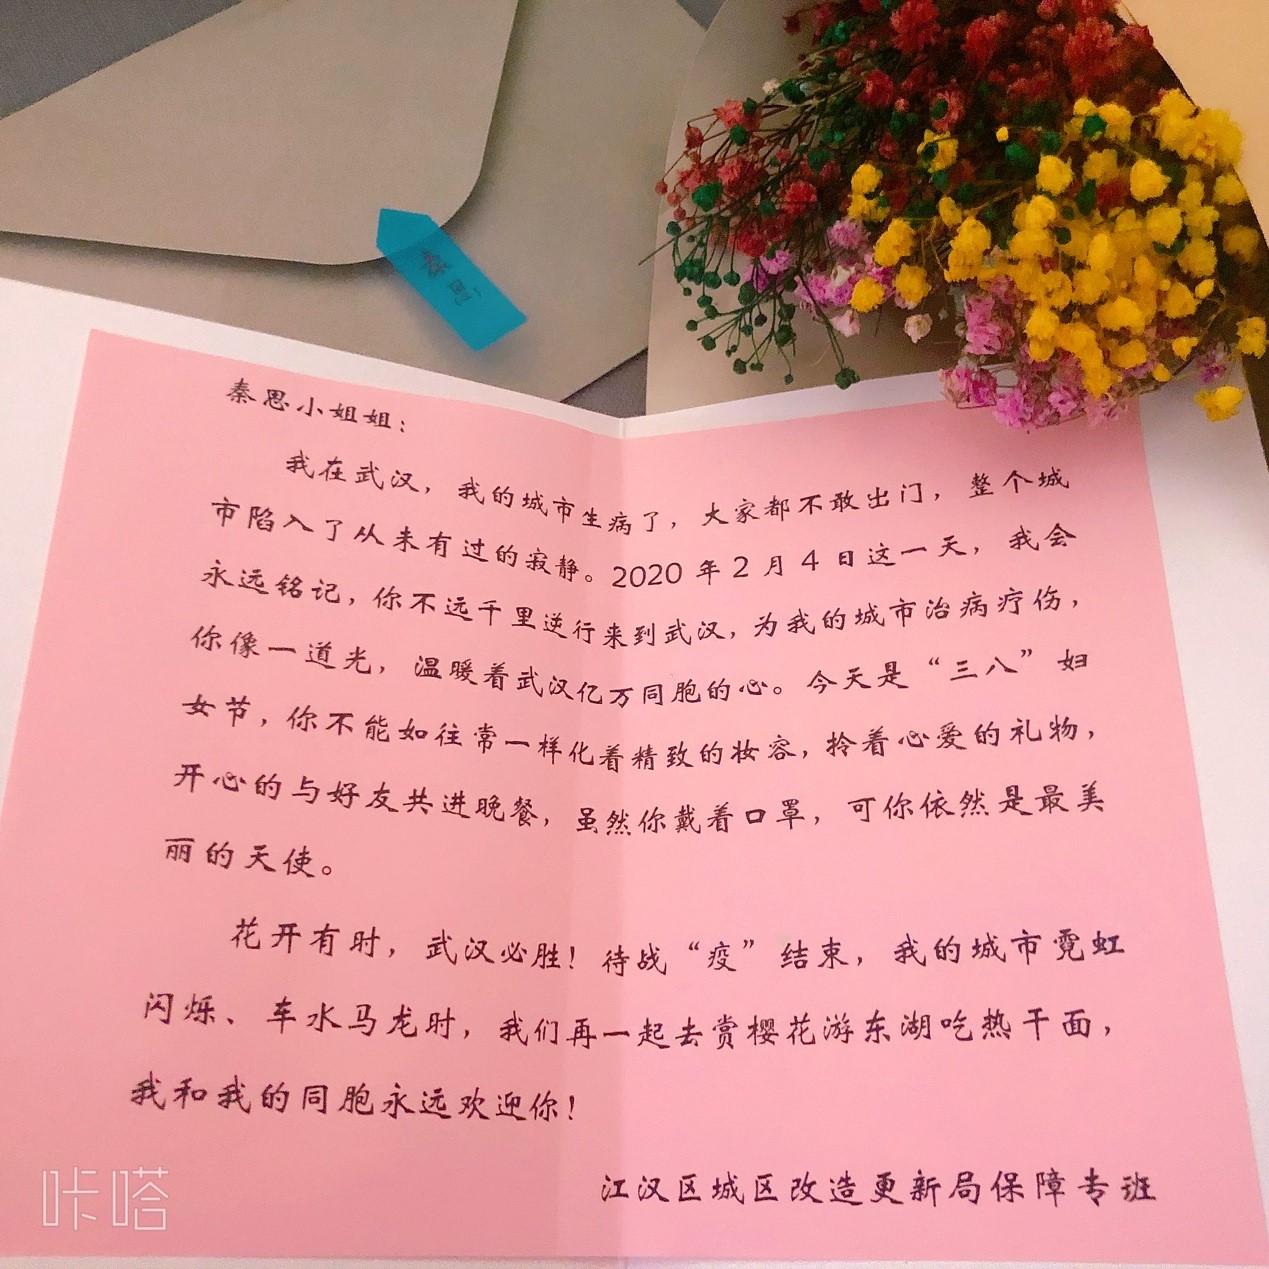 秦思
秦思小姐姐：
我在武汉，我的城市生病了，大家都不敢出门，整个城
市陷入了从未有过的寂静。2020年2月4日这一天，我会
永远铭记，你不远千里逆行来到武汉，为我的城市治病疗伤，
你像一道光，温暖着武汉亿万同胞的心。今天是“三八”妇
女节，你不能如往常一样化着精致的妆容，拎着心爱的礼物，
开心的与好友共进晚餐，虽然你戴着口罩，可你依然是最美
丽的天使。
花开有时，武汉必胜！待战“疫”结束，我的城市霓虹
闪烁、车水马龙时，我们再一起去赏樱花游东湖吃热干面，
我和我的同胞永远欢迎你！
江汉区城区改造更新局保障专班
咔嗒